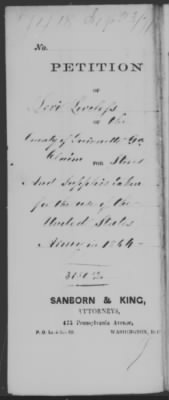 No.
PETITION
OF
Levi Loveless
OF the
County of Gwinnett Ga
Claim FOR Stores
And Supplies taken
for the use of the
United States
Army in 1864-
SANBORN & KING,
ATTORNEYS,
Pennsylvania Avenue,
P. O. WASHINGTON,